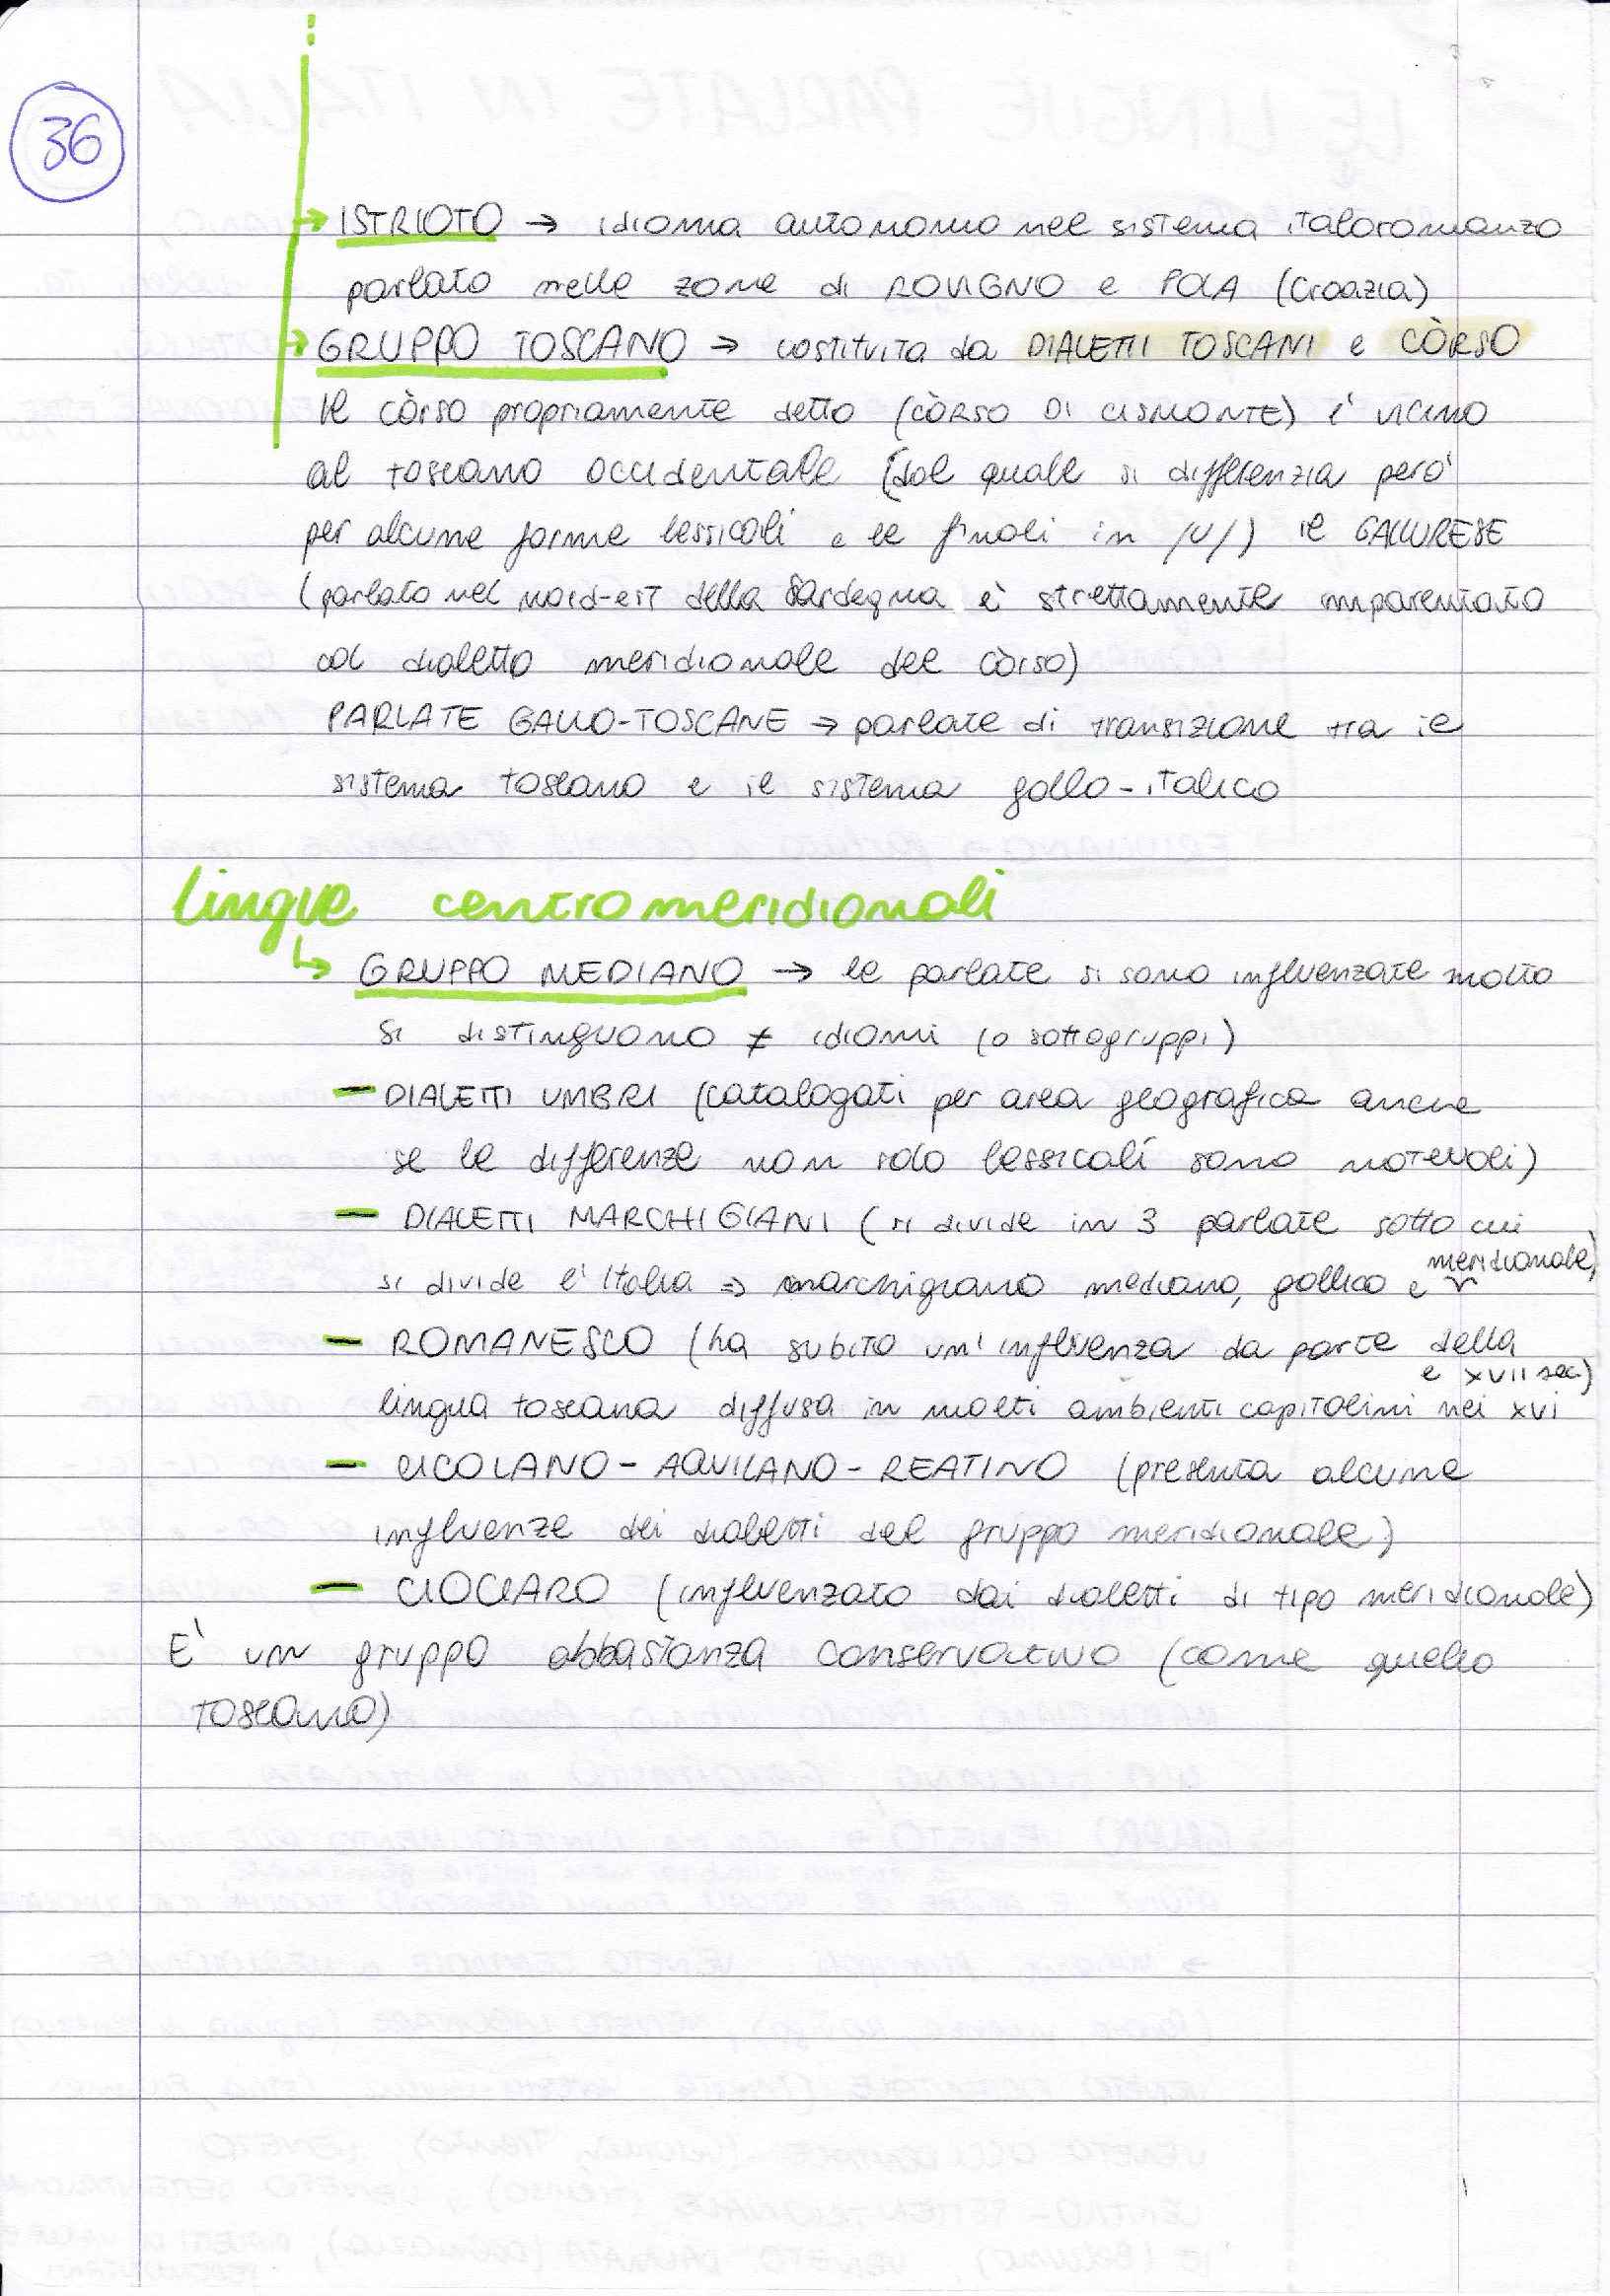 36
→ ISTRIOTO → idioma autonomo nel sistema italoromanzo
parlato nelle zone di ROVIGNO e POLA (Croazia)
→ GRUPPO TOSCANO → costituita da DIALETTI TOSCANI e CÒRSO
Il còrso propriamente detto (CÒRSO DI CISMONTE) è vicino
al toscano occidentale (dal quale si differenzia però
per alcune forme lessicali e le finali in /U/) il GALLURESE
(parlato nel nord-est della Sardegna è strettamente imparentato
col dialetto meridionale del còrso)
PARLATE GALLO-TOSCANE → parlate di transizione tra il
sistema toscano e il sistema gallo-italico
Lingue centromeridionali
↳ GRUPPO MEDIANO → le parlate si sono influenzate molto
Si distinguono ≠ idiomi (o sottogruppi)
- DIALETTI UMBRI (catalogati per area geografica anche
se le differenze non solo lessicali sono notevoli)
- DIALETTI MARCHIGIANI (si divide in 3 parlate sotto cui
si divide l'Italia => marchigiano mediano, gallico e meridionale)
- ROMANESCO (ha subito un'influenza da parte della
lingua toscana diffusa in molti ambienti capitolini nei XVI e XVII sec.)
- CICOLANO-AQUILANO-REATINO (presenta alcune
influenze dei dialetti del gruppo meridionale)
- CIOCIARO (influenzato dai dialetti di tipo meridionale)
E' un gruppo abbastanza conservativo (come quello
toscano)